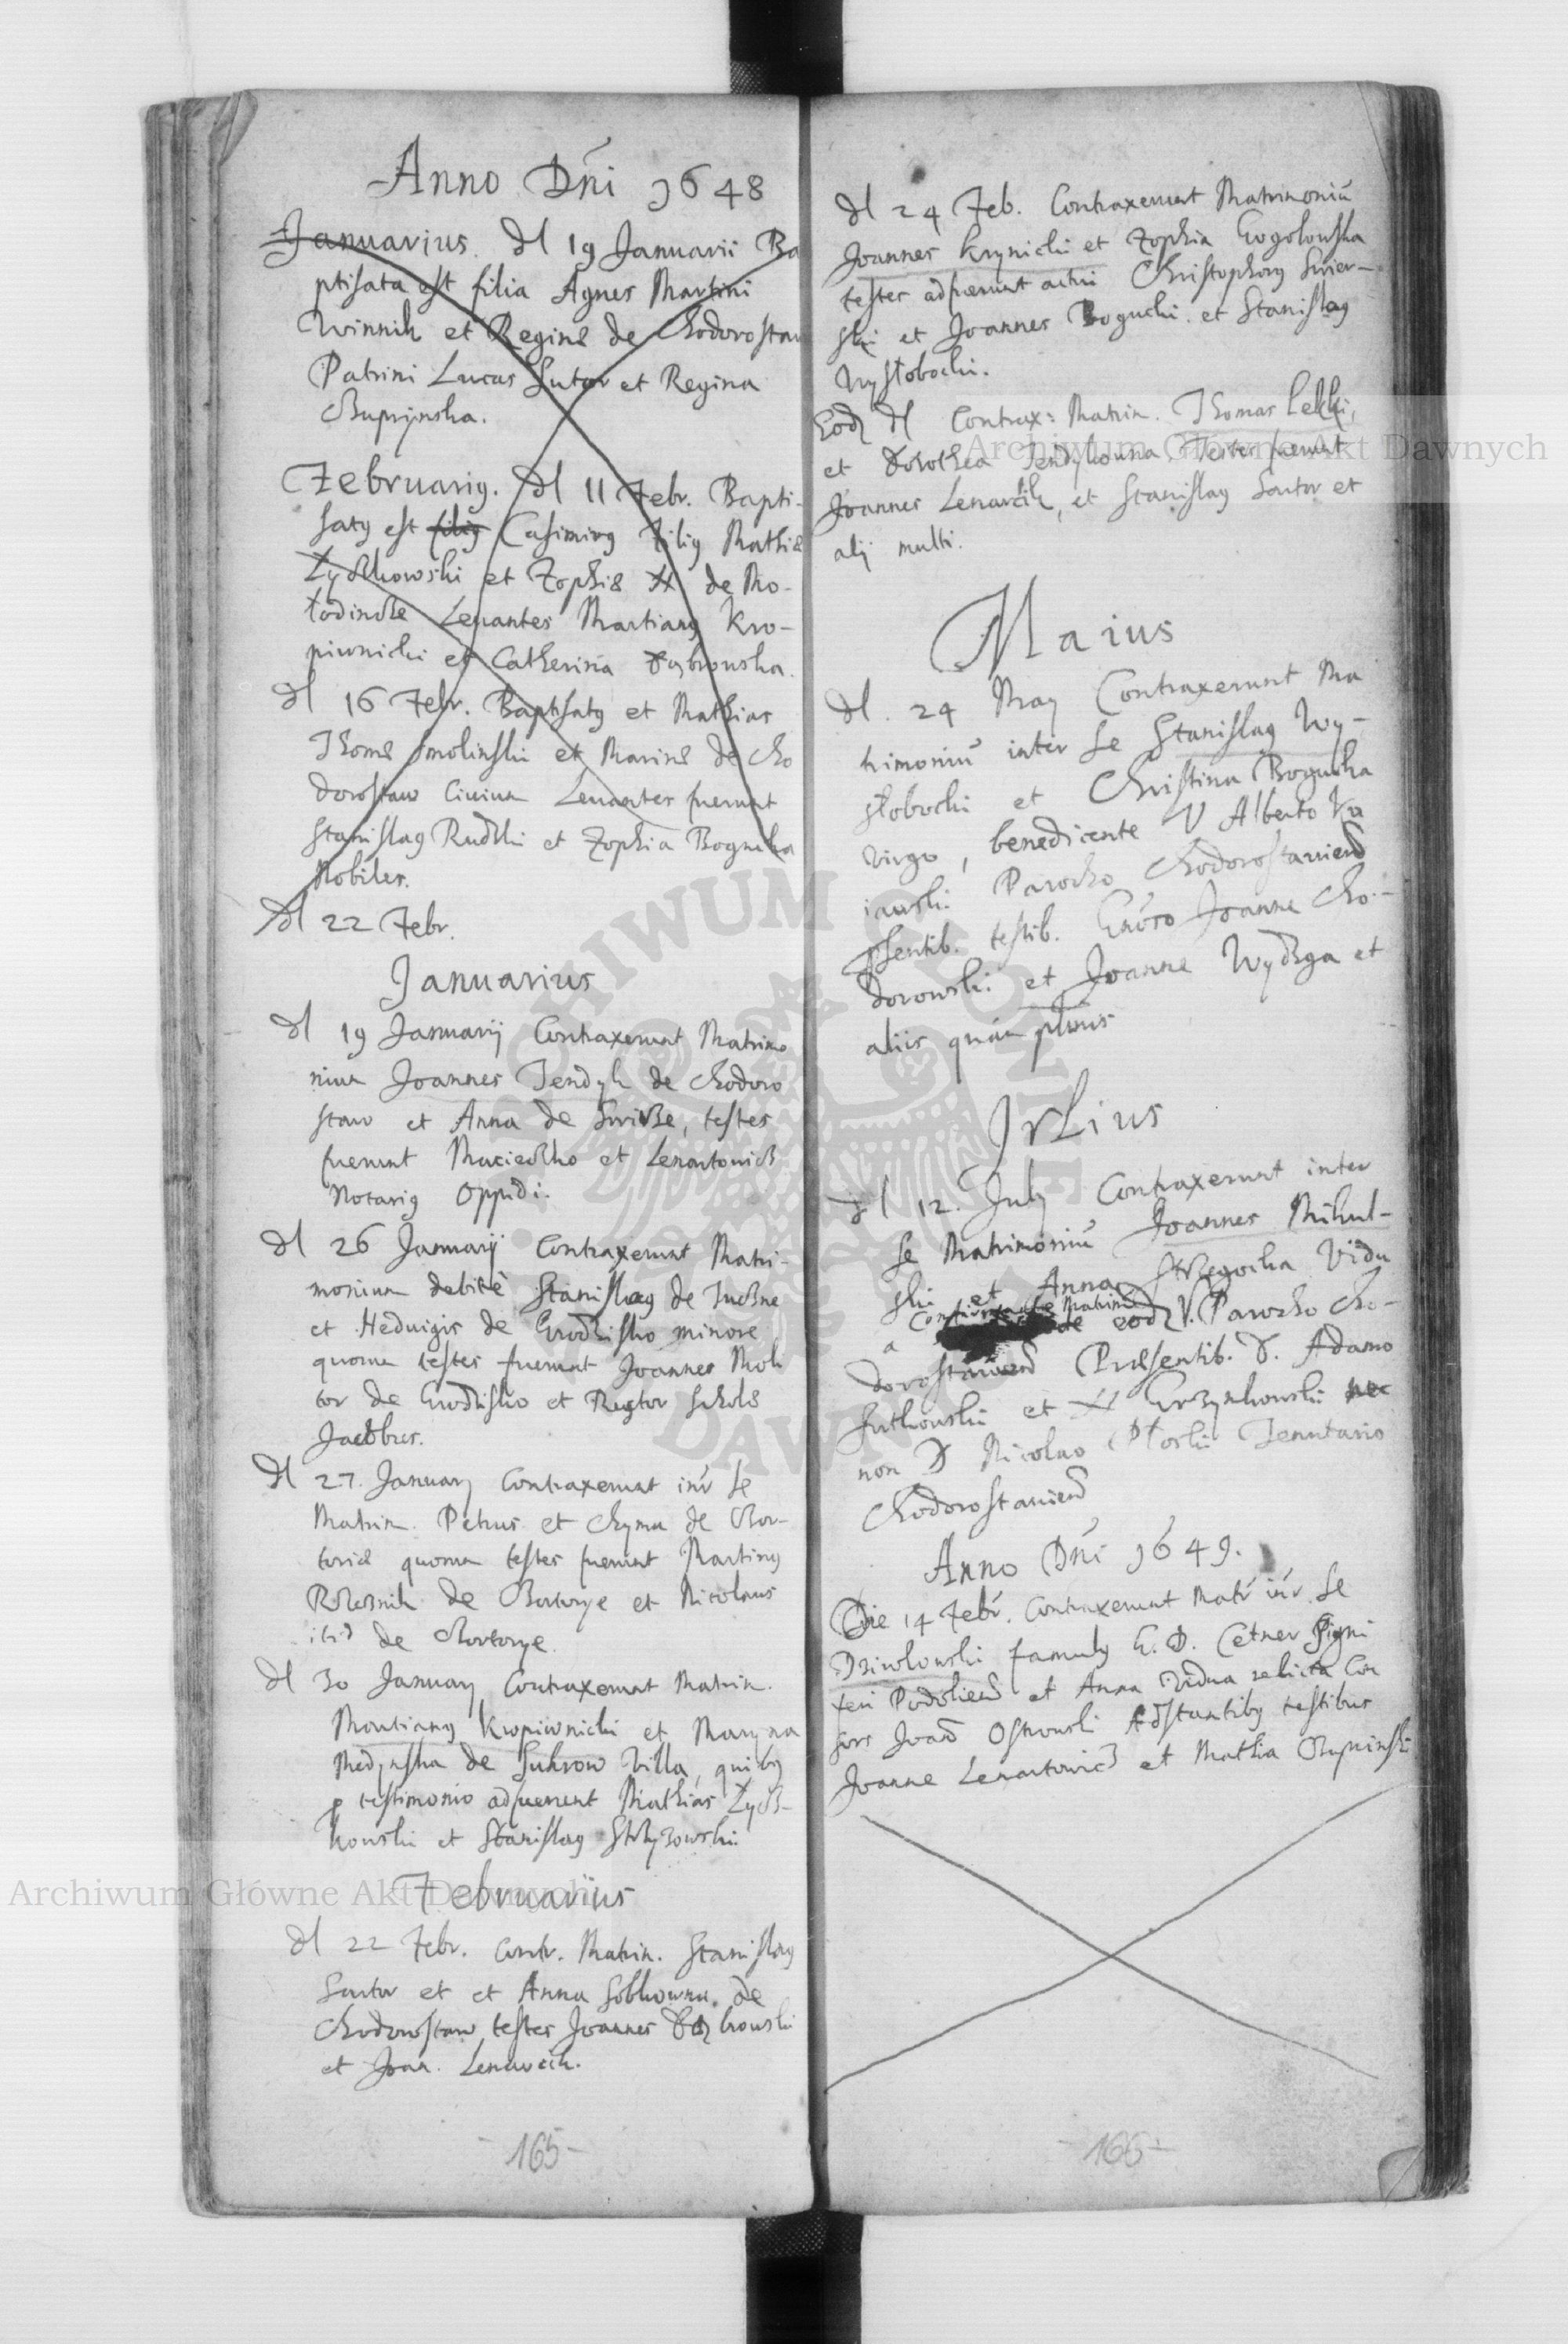 Anno Dni 1648
Januarius. Dl 19 Januarii Ba
ptisata est filia Agnes Martini
Winnik et Reginæ de Chodorostaw
Patrini Lucas Sutor et Regina
Februarius. Dl 11 Febr. Bapti-
satus est filius Casimirus Filius Mathiæ
et Zophiæ de Mo-
Levantes Martianus Kro-
piwnicki et Catherina Dąbrowska.
Dl 16 Febr. Baptisatus et Mathias
Thomæ Smolinski et Marinæ de Cho
dorostaw Civium Levantes fuerunt
Stanislaus Rudzki et Zophia Bogucka
Nobiles.
Dl 22 Febr.
Januarius
Dl 19 Januarij Contraxerunt Matrimo
nium Joannes Tendyk de Chodoro
staw et Anna de testes
fuerunt Macieszko et Lenartowicz
Notarius Oppidi.
Dl 26 Januarij Contraxerunt Matri-
monium debitè Stanislaus de
et Hedvigis de Grodzisko minore
quorum testes fuerunt Joannes Moli
tor de Grodzisko et Rector Scholæ
Jacobus.
Dl 27. January Contraxerunt intr se
Matrim. Petrus et de Czor-
quorum testes fuerunt Martinus
de et Nicolaus
ibid de
Dl 30 January Contraxerunt Matrim.
Martianus Kropiwnicki et Maryna
Medynska de Sukrow Villa, quibus
p testimonio adfuerunt Mathias Zycz-
kowski et Stanislaus Strzyzowski
Februarius
Dl 22 Febr. Contr. Matrim. Stanislaus
Sartor et et Anna Sobkowna de
Chodorostaw, testes Joannes Dąbrowski
et Joan. Lenarcik.
-165-
Dl 24 Feb. Contraxerunt Matrimoniū
Joannes Krynicki et Zophia Gogolowska
testes adfuerunt actui Christophorus Swier-
ski et Joannes Bogucki et Stanislaus
Wysłobocki.
Eod Dl Contrax: Matrim. Thomas Lekki,
et Dorothea Tendykowna Testes fuerunt
Joannes Lenarcik, et Stanislaus Sartor et
alij multi.
Maius
Dl. 24 May Contraxerunt Ma
trimoniū inter se Stanislaus Wy-
słobocki et Christina Bogucka
Virgo, benedicente V Alberto Ku
iawski Parocho Chodorostaviens
psentib. testib. Gnoso Joanne Cho-
dorowski et Joanne Wydzga et
aliis quàm plimis
Julius
Dl 12. July Contraxerunt inter
se Matrimoniū Joannes Mikul-
ski et Anna Vidu
a eod V. Parocho Cho-
dorostaviens Præsentib. D. Adamo
Sutkowski et N Grzynkowski nec
non D Nicolao Płoski Tenutario
Chodorostaviens
Anno Dni 1649.
Die 14 Febr. Contraxerunt Matr intr se
Dziwlowski famulus G. D. Cetner Signi
feri Podoliens et Anna Vidua relicta Con
sors Joan Ostrowski Adstantibus testibus
Joanne Lenartowicz et Mathia
-166-
Archiwum Główne Akt Dawnych
Archiwum Główne Akt Dawnych
ARCHIWUM GŁÓWNE AKT DAWNYCH